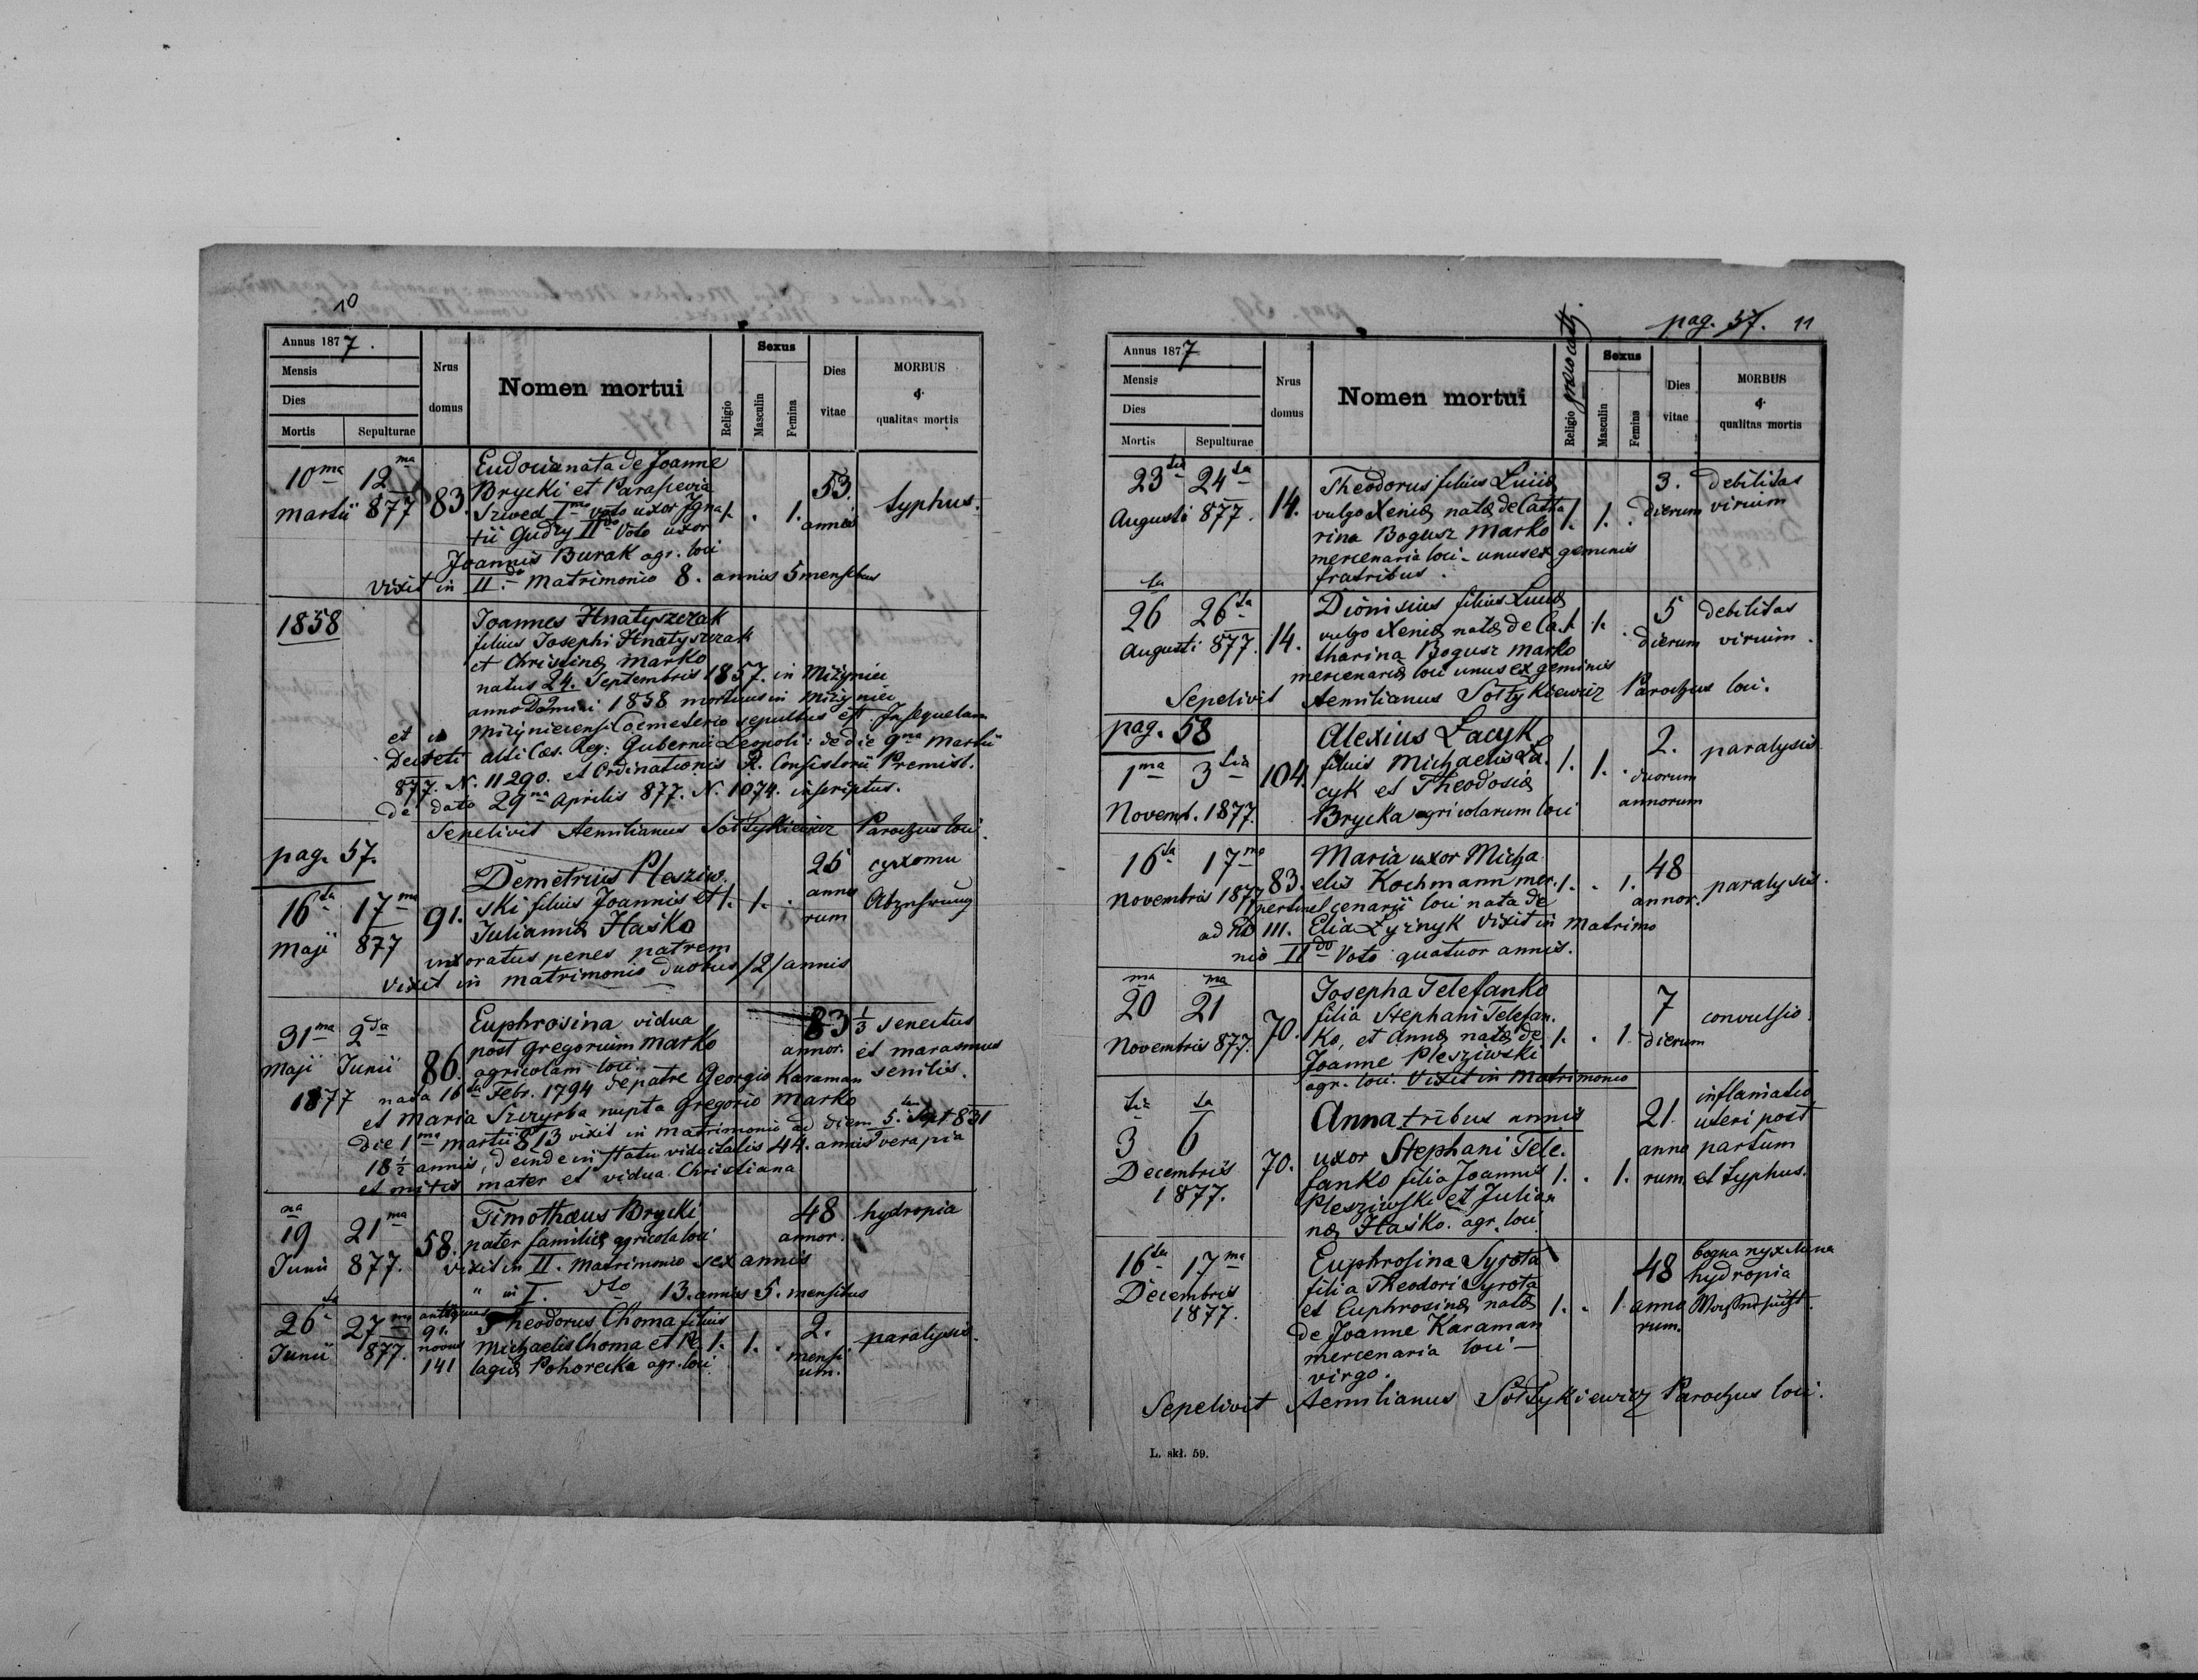 10
Annus 1877.
Mensis
Dies
Mortis Sepulturae
Nrus domus
Nomen mortui
Religio
Sexus
Masculin
Femina
Dies vitae
MORBUS & qualitas mortis
10ma 12ma Martii 877 83. 1. . 1. 53. annis typhus.
Eudocia nata de Joanne
Brycki et Parascevia
Szwed Imo voto uxor Igna
tii Gudzy IIdo Voto uxor
Joannis Burak agr. loci
vixit in IIdo Matrimonio 8. annis 5 mensibus
1858
Joannes Hnatyszczak
filius Josephi Hnatyszczak
et Christinæ Marko
natus 24. Septembris 1857. in Miżyniec
anno Domini 1858 mortuus in Miżyniec
et in Miżyniecensi Coemeterio sepultus est. In sequelam
Decreti alti Cæs. Reg: Gubernii Leopoli: de die 9na Martii
877. N. 11290. et Ordinationis R. Consistorii Premisl.
de dato 29na Aprilis 877. N. 1074. inscriptus.
Sepelivit Aemilianus Sołtykiewicz Parochus loci.
pag. 57.
16ta 17ma Maji 877 91. 1. 1. . 25 anno rum
Demetrius Plesziw.
ski filius Joannis et
Julianæ Haśko
uxoratus penes patrem
vixit in matrimonio duobus /2/ annis
сухоти
Abzehrung
31ma Maji 2da Junii 1877 86. 83 1/3 annor. senectus et marasmus senilis.
Euphrosina vidua
post Gregorium Marko
agricolam loci
nata 16ta Febr. 1794 de patre Georgio Karaman
et Maria Szczyrba nupta Gregorio Marko
die 1ma Martii 813 vixit in matrimonio ad diem 5. Sept 831
18 1/2 annis, deinde in statu viduitatis 44. annis vera pia
et mitis mater et vidua Christiana
19na 21ma Junii 877. 58. 48 annor. hydropia
Timothæus Brycki
pater familiæ agricola loci
vixit in II. Matrimonio sex annis
" in I. dto 13. annis 5. mensibus
26ta 27ma Junii 877. antiquus 9. novus 141 1. 1. . 2. mensi um. paralysis.
Theodorus Choma filius
Michaelis Choma et Pe
lagiæ Pohorecka agr. loci
pag. 57. 11
Annus 1877
Mensis
Dies
Mortis Sepulturae
Nrus domus
Nomen mortui
Religio
Sexus
Masculin
Femina
Dies vitae
MORBUS & qualitas mortis
23tia 24ta Augusti 877. 14. 1. 1. . 3. dierum debilitas virium
Theodorus filius
vulgo Xeniæ natæ de Catha
rina Bogusz Marko
mercenaria loci - unus ex geminis
fratribus.
26ta 26ta Augusti 877. 14. 1. 1. . 5 dierum debilitas virium.
Dionisius filius
vulgo Xeniæ natæ de Ca.
tharina Bogusz Marko
mercenariæ loci unus ex geminis
Sepelivit Aemilianus Sołtykiewicz Parochus loci.
pag. 58
1ma 3tia Novemb. 1877. 104. 1. 1. . 2. duorum annorum paralysis
Alexius Łacyk
filius Michaelis Ła.
cyk et Theodosiæ
Brycka agricolarum loci
16ta 17ma Novembris 1877 83. 1. . 1. 48 annor. paralysis.
Maria uxor Micha
elis Kochmann mer.
cenarii loci nata de
pertinet ad No 111. Elia Łyżnyk vixit in Matrimo
nio IIdo Voto quatuor annis.
20ma 21ma Novembris 877. 70. 1. . 1 7 dierum convulsio.
Josepha Telefanko
filia Stephani Telefan.
ko, et Annæ natæ de
Joanne Plesziwski
agr. loci. Vixit in Matrimonio
3tia 6ta Decembris 1877. 70. 1. . 1. 21 anno rum.
Anna tribus annis
uxor Stephani Tele.
fanko filia Joannis
Plesziwski et Julian
næ Haśko. agr. loci
inflamatio
uteri post
partum
et typhus.
16ta 17ma Decembris 1877. 1. . 1 48 anno rum.
Euphrosina Syrota
filia Theodori Syrota
et Euphrosinæ natæ
de Joanne Karaman
mercenaria loci —
virgo.
hydropia
Sepelivit Aemilianus Sołtykiewicz Parochus loci.
L. skł. 59.